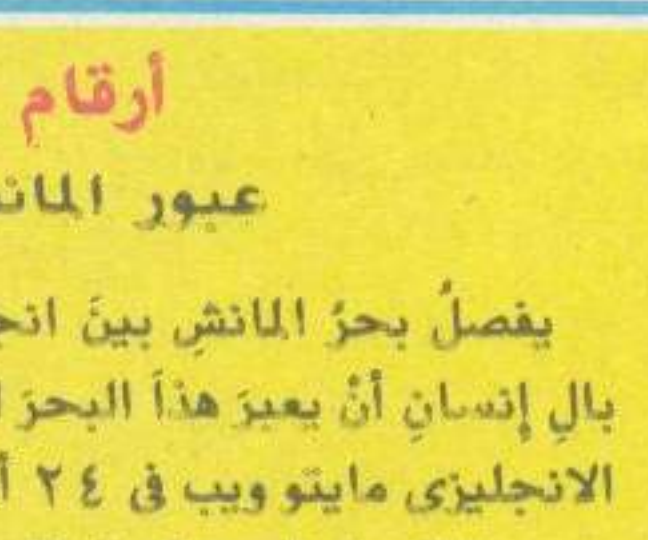 أرقام
عبور المانـ
يفصلُ بحرُ المانشِ بينَ انجـ
بالِ إنسانٍ أنْ يعبرَ هذاَ البحرَ
الانجليزى مايتو ويب فى ٢٤ أ